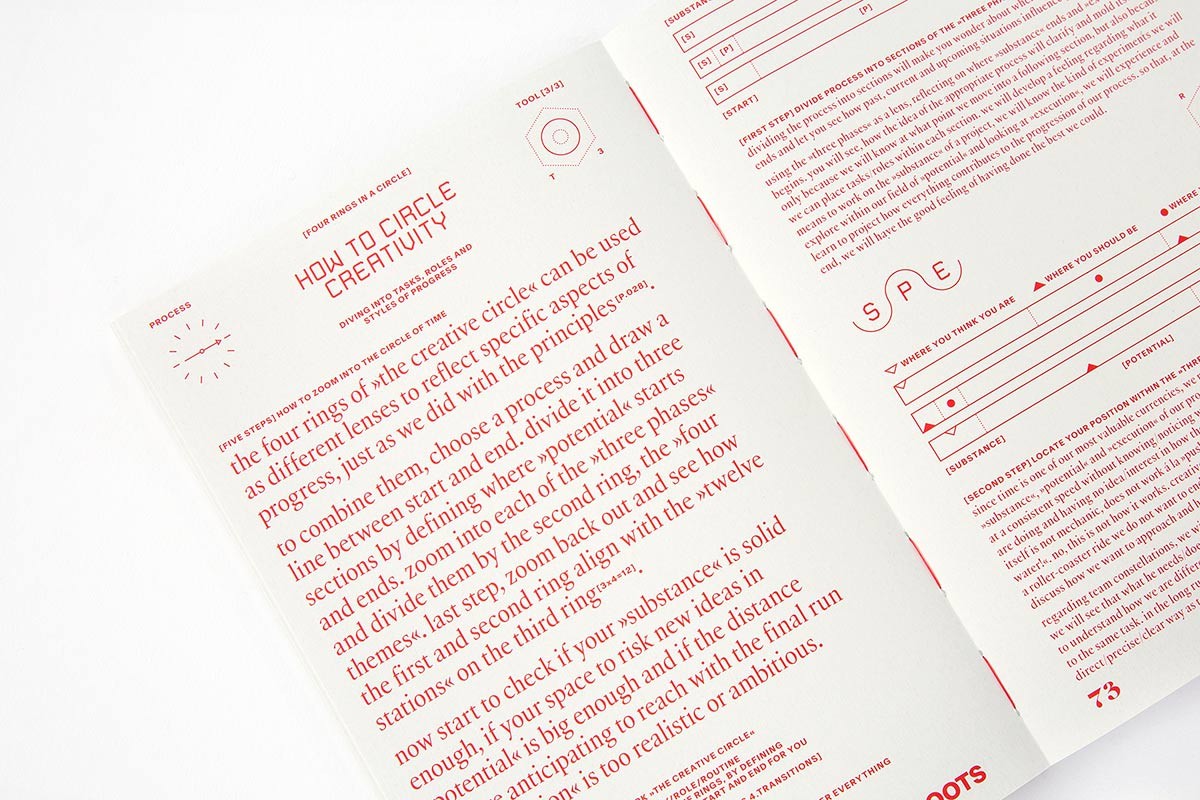 TOOL [3/3]
3
T
[FOUR RINGS IN A CIRCLE]
HOW TO CIRCLE
CREATIVITY
DIVING INTO TASKS, ROLES AND
STYLES OF PROGRESS
PROCESS
[FIVE STEPS] HOW TO ZOOM INTO THE CIRCLE OF TIME
the four rings of »the creative circle« can be used
as different lenses to reflect specific aspects of
progress, just as we did with the principles[P.028].
to combine them, choose a process and draw a
line between start and end. divide it into three
sections by defining where »potential« starts
and ends. zoom into each of the »three phases«
and divide them by the second ring, the »four
themes«. last step, zoom back out and see how
the first and second ring align with the »twelve
stations« on the third ring[3×4=12].
now start to check if your »substance« is solid
enough, if your space to risk new ideas in
potential« is big enough and if the distance
anticipating to reach with the final run
is too realistic or ambitious.
»THE CREATIVE CIRCLE«
/ROLE/ROUTINE
RINGS, BY DEFINING
START AND END FOR YOU
4. TRANSITIONS]
EVERYTHING
OOTS
[P]
[S]
[S] [P]
[S]
[START]
[FIRST STEP] DIVIDE PROCESS INTO SECTIONS OF THE »THREE
dividing the process into sections will make you wonder about
ends and let you see how past, current and upcoming situations influence
using the »three phases« as a lens, reflecting on where »substance« ends and
begins, you will see, how the idea of the appropriate process will clarify and mold
only because we will know at what point we move into a following section, but also
we can place tasks/roles within each section. we will develop a feeling regarding what it
means to work on the »substance« of a project, we will know the kind of experiments we will
explore within our field of »potential« and looking at »execution«, we will experience and
learn to project how everything contributes to the progression of our process. so that, at the
end, we will have the good feeling of having done the best we could.
R
S P E
WHERE YOU THINK YOU ARE
WHERE YOU SHOULD BE
WHERE
[POTENTIAL]
[SUBSTANCE]
[SECOND STEP] LOCATE YOUR POSITION WITHIN THE
since time is one of our most valuable currencies, we
»substance«, »potential« and »execution« of our
at a consistent speed without knowing/noticing
are doing and having no idea/interest in how
itself is not mechanic, does not work à la
water!«. no, this is not how it works.
a roller-coaster ride we do not want to
discuss how we want to approach and
regarding team constellations, we
we will see that what he needs/
to understand how we are
to the same task. in the long
direct/precise/clear way
73